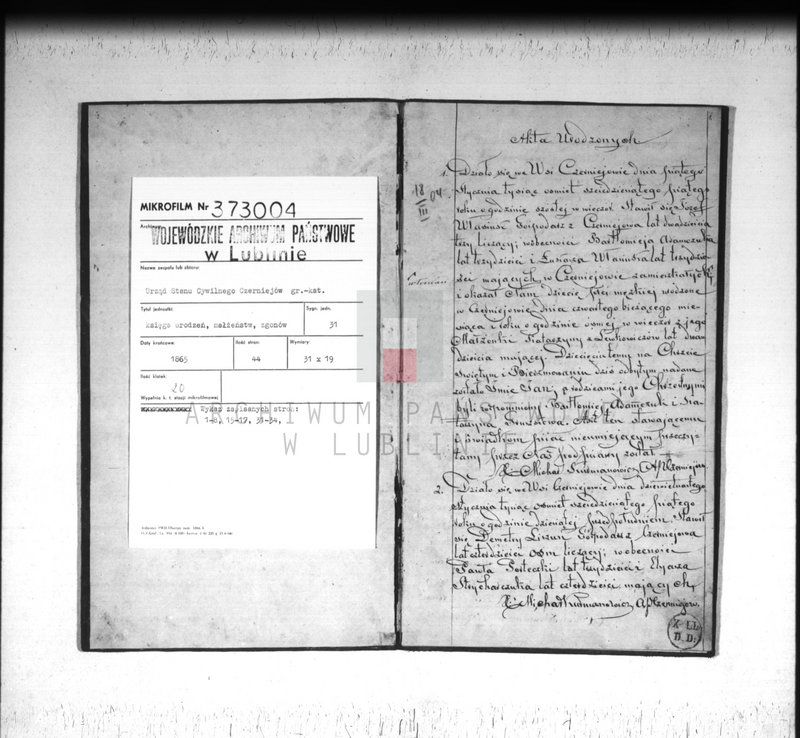 MIKROFILM Nr 373004
Archiwum
WOJEWÓDZKIE ARCHIWUM PAŃSTWOWE
w Lublinie
Nazwa zespołu lub zbioru:
Urząd Stanu Cywilnego Czerniejów gr.-kat.
Tytuł jednostki:
Sygn. jedn.
księga urodzeń, małżeństw, zgonów
31
Daty krańcowe:
Ilość stron:
Wymiary:
1865
44
31 x 19
Ilość klatek:
20
Wypełnia k. t. stacji mikrofilmowej
Wykaz zapisanych stron:
1-8, 15-17, 31-34.
ARCHIWUM PAŃSTWOWE
W LUBLINIE
Akta Urodzonych
18
III
04
1. Działo się we Wsi Czerniejowie dnia piątego
Stycznia tysiąc ośmset sześćdziesiątego piątego
roku o godzinie szóstej w wieczór. Stawił się Józef
Gospodarz z Czerniejowa lat dwadzieścia
trzy liczący, w obecności Bartłomieja Adamczuka
lat trzydzieści i Łukasza lat trzydzie-
ści mających, w Czerniejowie zamieszkałych
i okazał Nam dziecię płci męzkiej urodzone
w Czerniejowie dnia czwartego bieżącego mie-
siąca i roku o godzinie ósmej w wieczór z jego
Małżonki Katarzyny z lat dwa-
dzieścia mającej. Dziecięciu temu na Chrzcie
Świętym i Bierzmowaniu dziś odbytym nadane
zostało Imie Jan, a rodzicami jego Chrzestnymi
byli wspomniony Bartłomiej Adamczuk i Ka-
tarzyna Akt ten stawającemu
i świadkom pisać nieumiejącym przeczy-
tany przez Nas podpisany został
X. Michał
2. Działo się we Wsi Czerniejowie dnia dziewiętnastego
Stycznia tysiąc ośmset sześćdziesiątego piątego
roku o godzinie dziesiątej przed południem. Stawił
się Demetry Gospodarz z Czerniejowa
lat czterdzieści ośm liczący, w obecności
Pawła lat trzydzieści i Elyasza
lat czterdzieści mających,
X. Michał